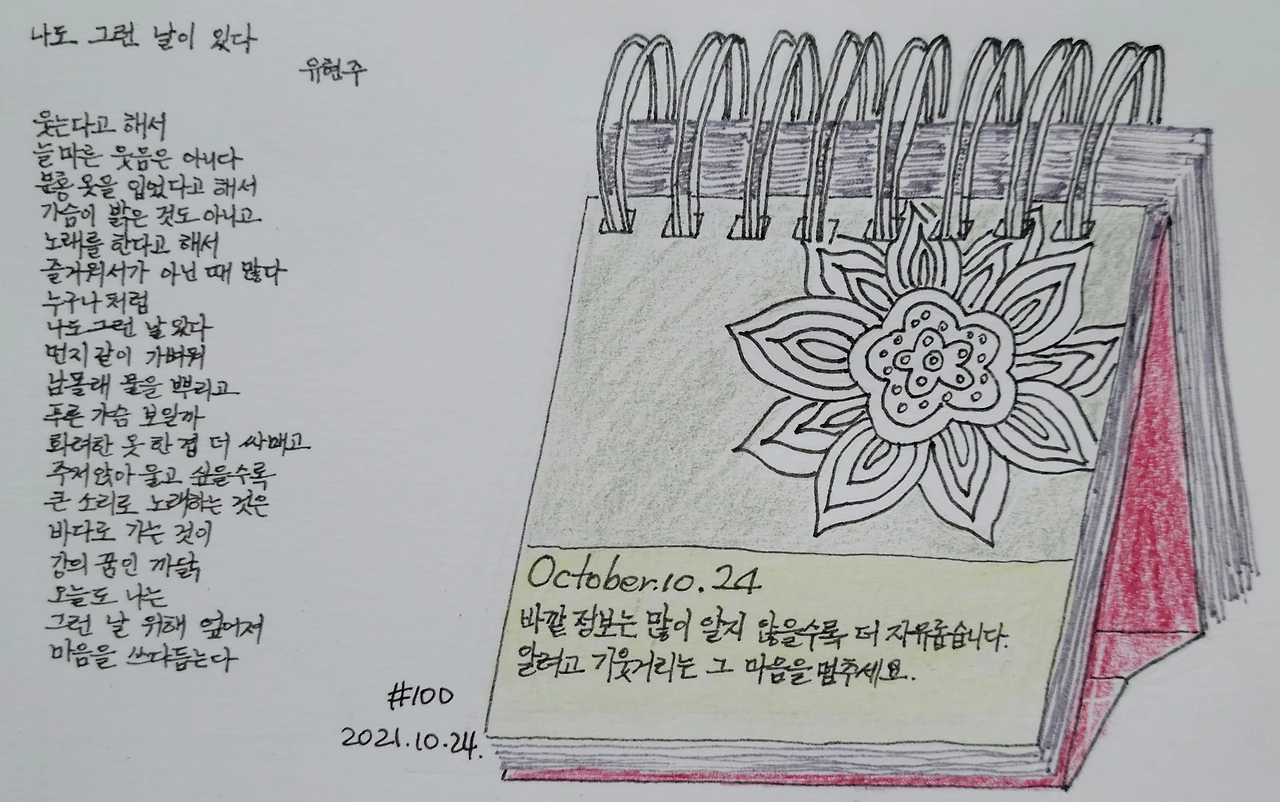 나도 그런 날이 있다
유현주
웃는다고 해서
늘 마른 웃음은 아니다
분홍 옷을 입었다고 해서
가슴이 밝은 것도 아니고
노래를 한다고 해서
즐거워서가 아닌 때 많다
누구나처럼
나도 그런 날 있다
먼지같이 가벼워
남몰래 물을 뿌리고
푸른 가슴 보일까
화려한 옷 한 겹 더 싸매고
주저앉아 울고 싶을수록
큰 소리로 노래하는 것은
바다로 가는 것이
강의 꿈인 까닭
오늘도 나는
그런 날 위해 엎어져
마음을 쓰다듬는다
#100
2021.10.24.
October.10.24
바깥 정보는 많이 알지 않을수록 더 자유롭습니다.
알려고 기웃거리는 그 마음을 멈추세요.